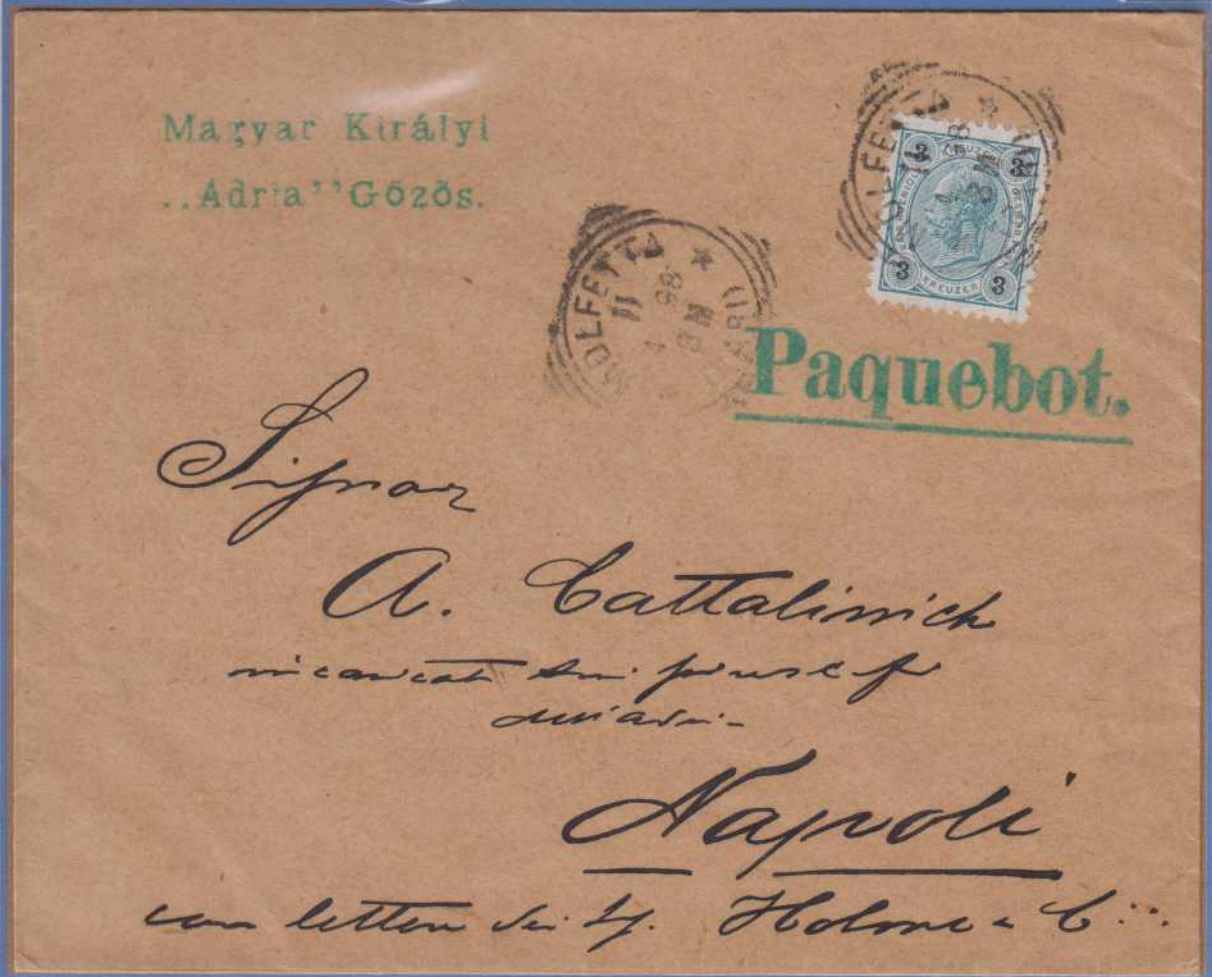 Magyar Királyi
„Adria’’ Gőzös.
MOLFETTA * (BARI)
11
4 98
8 M
MOLFETTA
3 KREUZER 3
3 KREUZER 3
Paquebot.
Signor
A. Cattalinich
Napoli
con lettera dei Sj. Holme & C